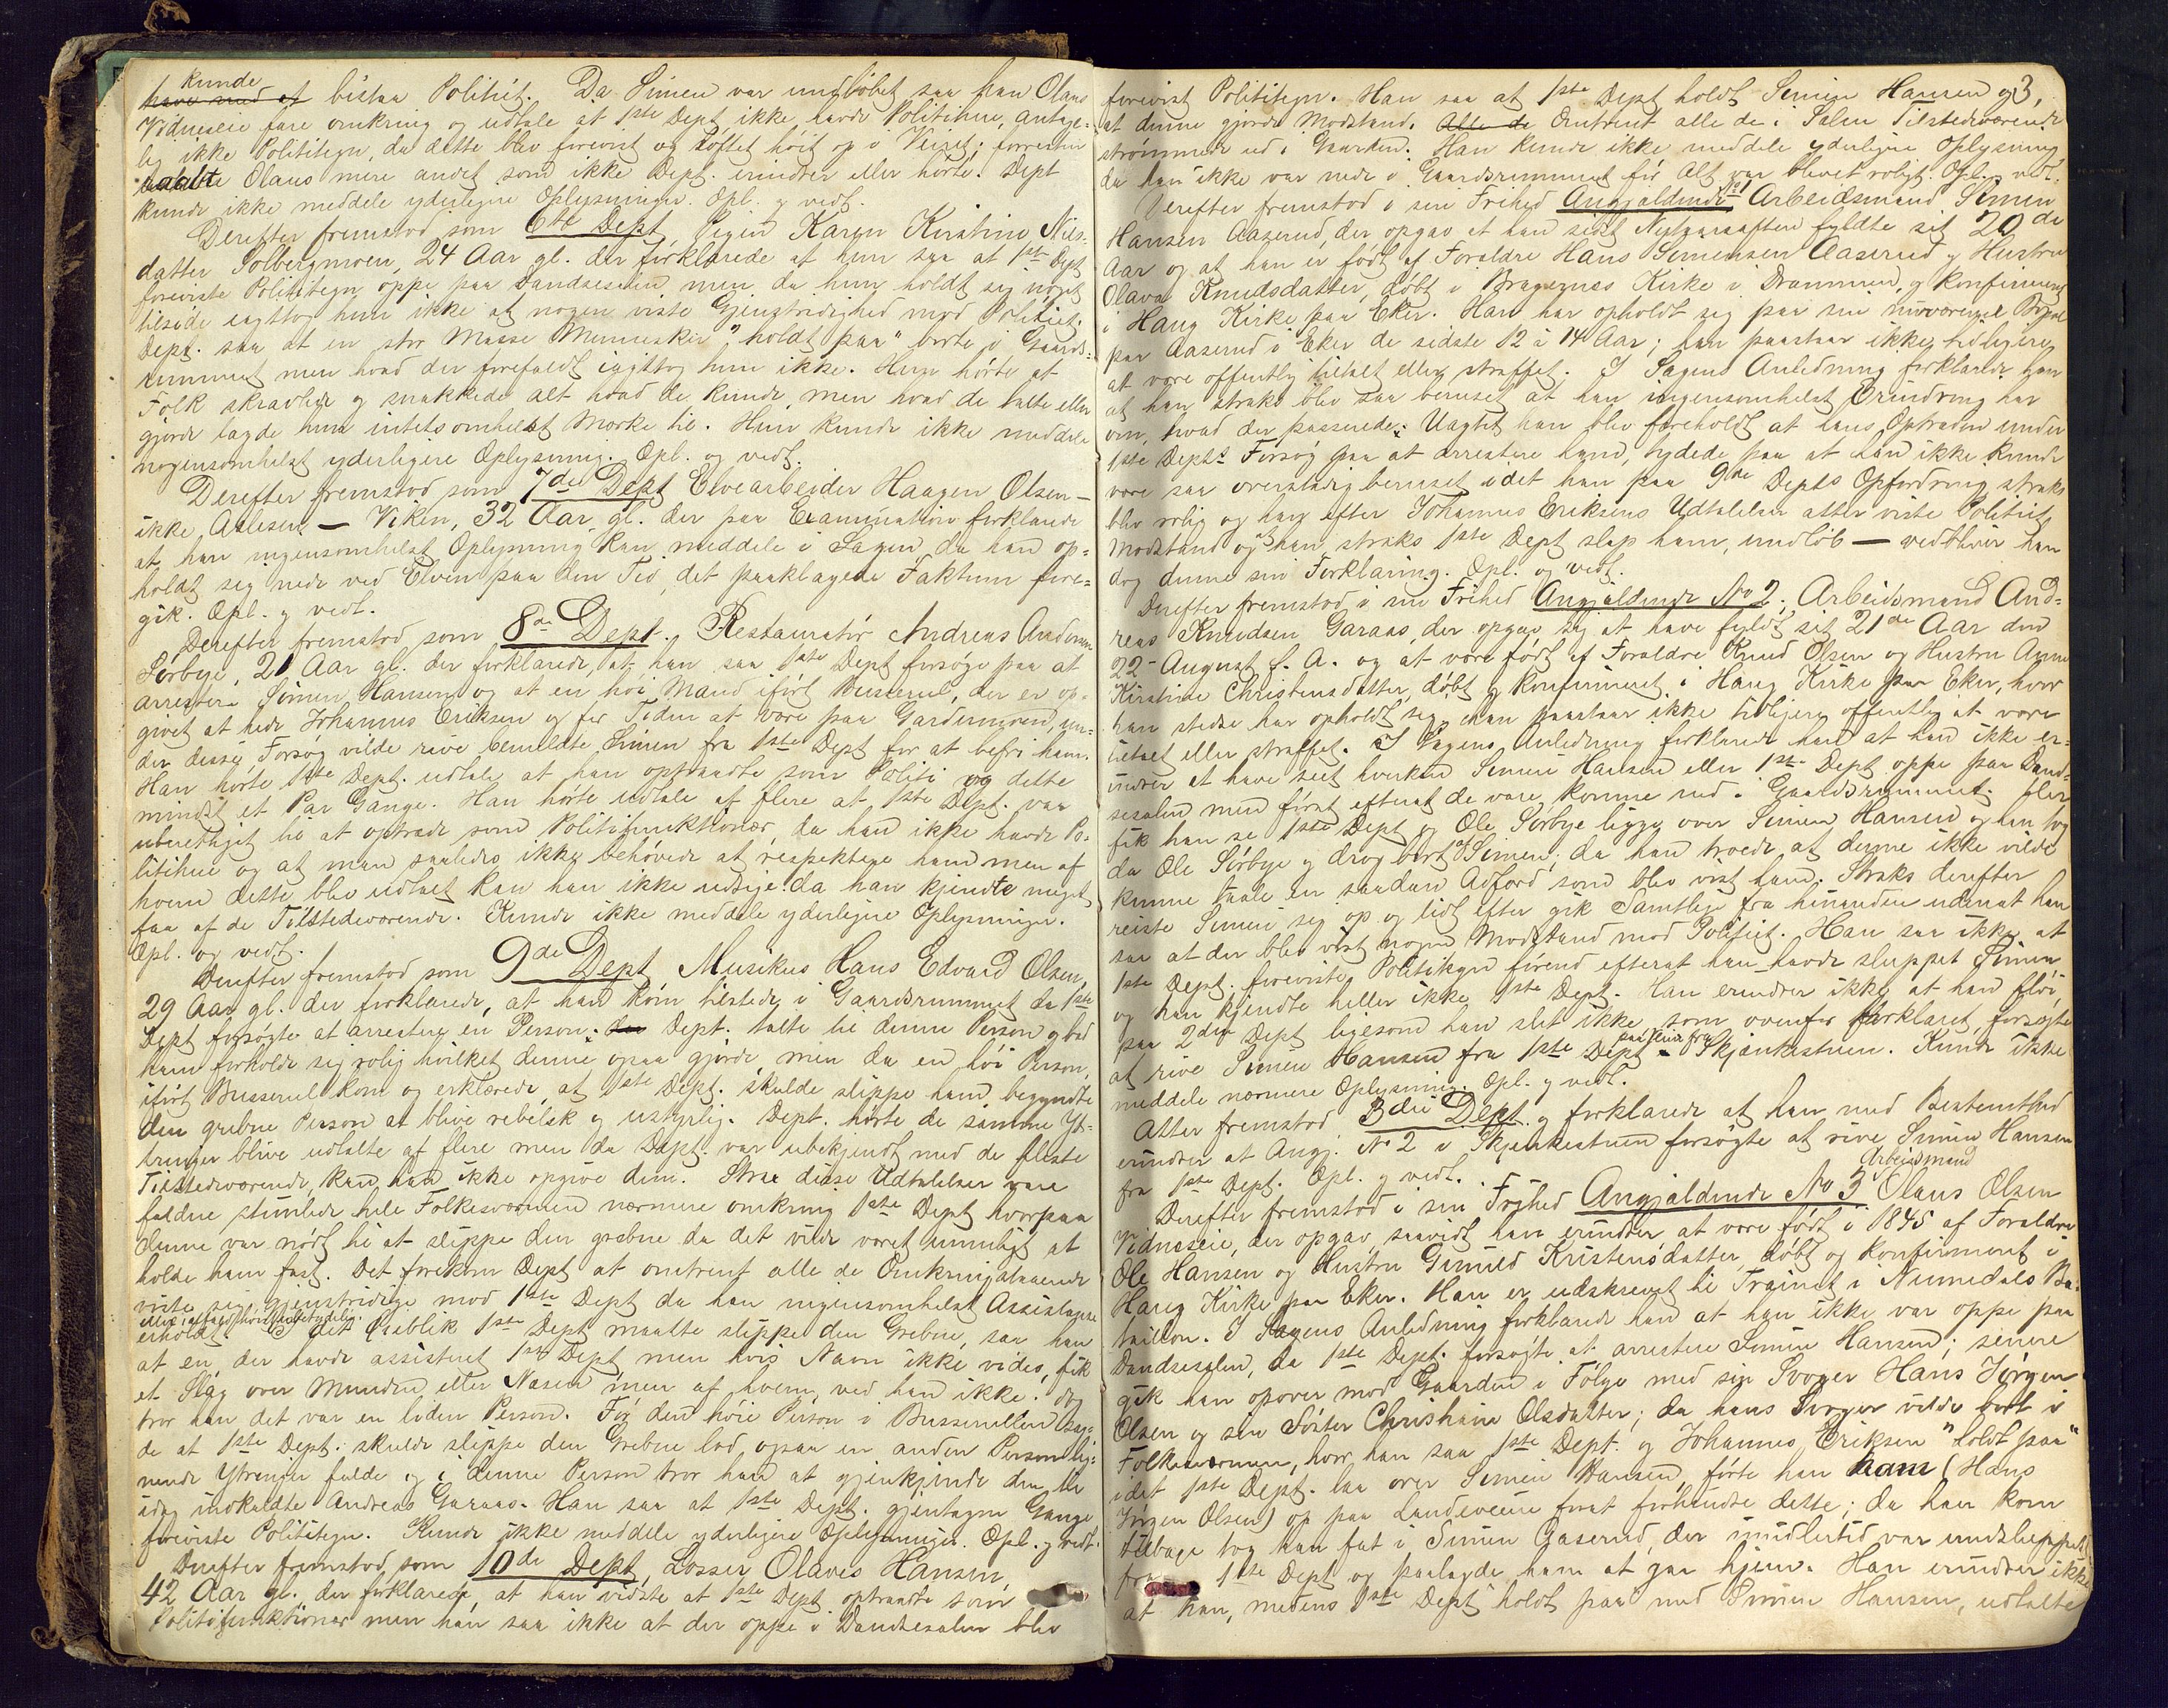 kunde
have med at bistaa Politiet. Da Simen var undløbet saa han Olaus
Vidneseie fare omkring og udtale at 1ste Dept ikke havde Politihue, antage-
lig ikke Polititegn, da dette blev forevist og løftet høit op i Veiret; forresten
talte Olaus mere andet som ikke Dept. erindrer eller hørte. Dept
kunde ikke meddele yderligere Oplysninger. Opl. og vedt.
Derefter fremstod som 6te Dept Pigen Karen Kirstine Niels-
datter Solbergmoen, 24 Aar gl. der forklarede at hun saa at 1ste Dept
foreviste Polititegn oppe paa Dandsesalen men da hun holdt sig noget
tilside iagttog hun ikke at nogen viste Gjenstridighed mod Politiet.
Dept. saa at en stor Masse Mennesker "holdt paa" borte i Gaards-
rummet men hvad der forefaldt iagttog hun ikke. Hun hørte at
Folk skravlede og snakkede alt hvad de kunde, men hvad de talte eller
gjorde lagde hun intetsomhelst Mærke til. Hun kunde ikke meddele
nogensomhelst yderligere Oplysning. Opl. og vedt.
Derefter fremstod som 7de Dept Elvearbeider Haagen Olsen –
ikke Axelsen – Viken, 32 Aar gl. der paa Examination forklarede
at han ingensomhelst Oplysning kan meddele i Sagen da han op-
holdt sig nede ved Elven paa den Tid det paaklagede Faktum fore-
gik. Opl. og vedt.
Derefter fremstod som 8de Dept. Restauratør Andreas Andersen
Sørbye, 21 Aar gl. der forklarede, at han saa 1ste Dept forsøge paa at
arrestere Simen Hansen og at en høi Mand iført Busserul, der er op-
givet at hede Johannes Eriksen og for Tiden at være paa Gardermoen, un-
der dette Forsøg vilde rive bemeldte Simen fra 1ste Dept for at befri ham.
Han hørte 1ste Dept. udtale at han optraadte som Politi og dette
mindst et Par Gange. Han hørte udtale af flere at 1ste Dept. var
uberettiget til at optræde som Politifunktionær, da han ikke havde Po-
litihue og at man saaledes ikke behøvede at respektere ham men af
hvem dette blev udtalt kan han ikke udsige da han kjendte meget
faa af de Tilstedeværende. Kunde ikke meddele yderligere Oplysninger.
Opl. og vedt.
Derefter fremstod som 9de Dept Musikus Hans Edvard Olsen,
29 Aar gl. der forklarede, at han kom tilstede i Gaardsrummet da 1ste
Dept forsøgte at arrestere en Person. Dept. talte til denne Person og bad
ham forholde sig rolig hvilket denne ogsaa gjorde, men da en høi Person,
iført Busserul kom og erklærede, at 1ste Dept. skulde slippe ham, begyndte
den grebne Person at blive rebelsk og ustyrlig. Dept. hørte de samme Yt-
tringer blive udtalte af flere men da Dept. var ubekjendt med de fleste
Tilstedeværende, kan han ikke opgive dem. Strax disse Udtalelser vare
faldne stimlede hele Folkesværmen nærmere omkring 1ste Dept hvorpaa
denne var nødt til at slippe den grebne da det vilde været umuligt at
holde ham fast. Det forekom Dept at omtrent alle de Omkringstaaende
viste sig gjenstridige mod 1ste Dept da han ingensomhelst Assistance
eller ialfald høist ubetydelig.
erholdt I det Øieblik 1ste Dept maatte slippe den Grebne, saa han
at en, der havde assisteret 1ste Dept men hvis Navn ikke vides, fik
et Slag over Munden eller Næsen men af hvem ved han ikke; dog
tror han det var en liden Person. Før den høie Person i Busserullen sag-
de at 1ste Dept. skulde slippe den Grebne lod ogsaa en anden Person lig-
nende Ytringer falde og i denne Person tror han at gjenkjende den til
idag indkaldte Andreas Garaas. Han saa at 1ste Dept. gjentagne Gange
foreviste Polititegn. Kunde ikke meddele yderligere Oplysninger. Opl. og vedt.
Derefter fremstod som 10de Dept, Losser Olaves Hansen,
42 Aar gl. der forklarede, at han vidste at 1ste Dept optraadte som
Politifunktionær men han saa ikke at der oppe i Dandsesalen blev
3,
forevist Polititegn. Han saa at 1ste Dept holdt Simen Hansen og
at denne gjorde Modstand. Alle de Omtrent alle de i Salen Tilstedeværende
strømmede ud i Gaarden. Han kunde ikke meddele yderligere Oplysning
da han ikke var nede i Gaardsrummet før Alt var blevet roligt. Opl. og vedt.
Derefter fremstod i sin Frihed Angjældende No 1 Arbeidsmand Simen
Hansen Aaserud, der opgav at han sidst Nytaarsaften fyldte sit 20de
Aar og at han er født af Forældre Hans Simensen Aaserud og Hustru
Olava Knudsdatter, døbt i Bragernæs Kirke i Drammen, og konfirmeret
i Haug Kirke paa Eker. Han har opholdt sig paa sin nuværende Bopæl
paa Aaserud i Eker de sidste 12 à 14 Aar; han paastaar ikke tidligere
at være offentlig tiltalt eller straffet. I Sagens Anledning forklarede han
at han straks blev saa beruset at han ingensomhelst Erindring har
om, hvad der passerede. Uagtet han blev foreholdt at hans Optræden under
1ste Depts Forsøg paa at arrestere ham, tydede paa at han ikke kunde
være saa overstadig beruset idet han paa 9de Depts Opfordring straks
blev rolig og han efter Johannes Eriksens Udtalelser atter viste Politiet
Modstand og at han, straks 1ste Dept slap ham, undløb – vedbliver han
dog denne sin Forklaring. Opl. og vedt.
Derefter fremstod i sin Frihed Angjældende No 2, Arbeidsmand And-
reas Knudsen Garaas, der opgav sig at have fyldt sit 21de Aar den
22- August f. A. og at være født af Forældre Knud Olsen og Hustru Anne
Kirstine Christensdatter, døbt og konfirmeret i Haug Kirke paa Eker, hvor
han stedse har opholdt sig; han paastaar ikke tidligere offentlig at være
tiltalt eller straffet. I Sagens Anledning forklarede han at han ikke er-
indrer at have seet hverken Simen Hansen eller 1ste Dept oppe paa Dand-
sesalen men først efterat de vare komne ned i Gaardsrummet. Her
fik han se 1ste Dept og Ole Sørbye ligge over Simen Hansen og han tog
da Ole Sørbye og drog bort Simen; da han troede at denne ikke vilde
kunne taale en saadan Adfærd som blev vist ham. Straks derefter
reiste Simen sig op og lidt efter gik Samtlige fra hinanden udenat han
saa at der blev vist nogen Modstand mod Politiet. Han saa ikke at
1ste Dept. foreviste Polititegn førend efterat han havde sluppet Simen
og han kjendte heller ikke 1ste Dept. Han erindrer ikke at han fløi
paa 2det Dept ligesom han slet ikke, som ovenfor forklaret, forsøgte
at rive Simen Hansen fra 1ste Dept Skjænkestuen. Kunde ikke
meddele nærmere Oplysning. Opl. og vedt.
Atter fremstod 3die Dept og forklarede at han med Bestemthed
erindrer at Angj. No 2 i Skjænkestuen forsøgte at rive Simen Hansen
fra 1ste Dept. Opl. og vedt.
Arbeidsmand
Derefter fremstod i sin Frihed Angjældende No 3 Olaus Olsen
Vidneseie, der opgav, saavidt han erindrer at være født i 1845 af Forældre
Ole Hansen og Hustru Gunild Kristensdatter, døbt og konfirmeret i
Haug Kirke paa Eker. Han er udskrevet til Trainet i Numedals Ba-
taillon. I Sagens Anledning forklarede han at han ikke var oppe paa
Dandsesalen, da 1ste Dept. forsøgte at arrestere Simen Hansen; senere
gik han opover mod Gaarden i Følge med sin Svoger Hans Jørgen
Olsen og sin Søster Christiane Olsdatter; da hans Svoger vilde bort i
Folkesværmen, hvor han saa 1ste Dept. og Johannes Eriksen "holdt paa"
idet 1ste Dept. laa over Simen Hansen, førte han ham (Hans
Jørgen Olsen) op paa Landeveien forat forhindre dette; da han kom
tilbage tog han fat i Simen Gaserud, der imidlertid var undsluppet
fra 1ste Dept og paalagde ham at gaa hjem. Han erindrer ikke
at han, medens 1ste Dept "holdt paa" med Simen Hansen, udtalte